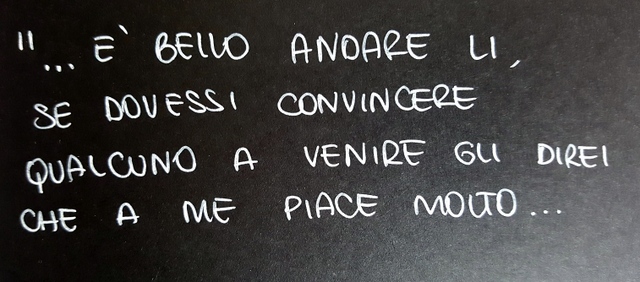 "... E' BELLO ANDARE LI,
SE DOVESSI CONVINCERE
QUALCUNO A VENIRE GLI DIREI
CHE A ME PIACE MOLTO...